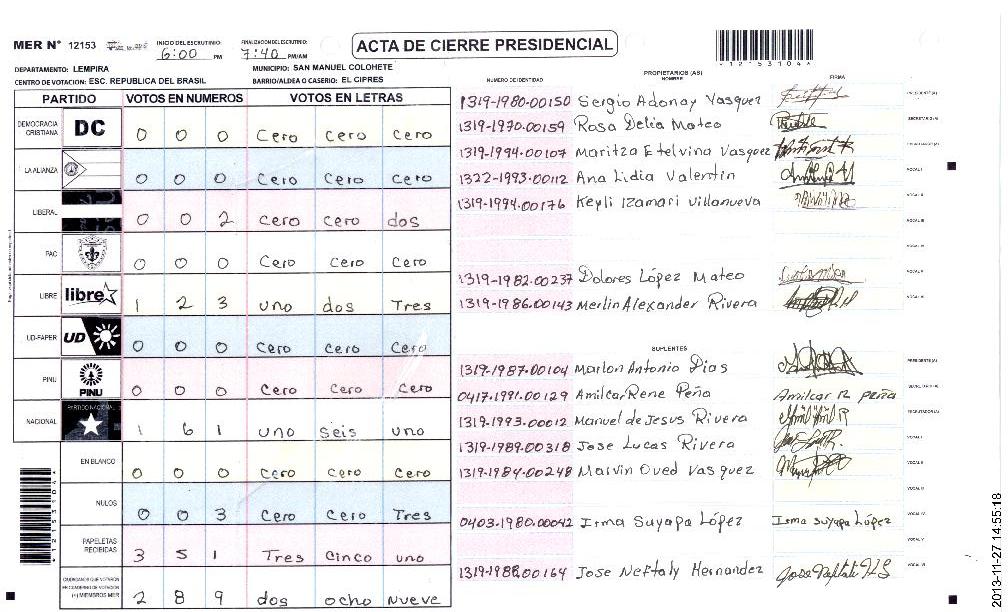 MER N° 12153
INICIO DEL ESCRUTINIO:
6:00 PM
FINALIZACION DEL ESCRUTINIO:
7:40 PM/AM
ACTA DE CIERRE PRESIDENCIAL
*12153104*
DEPARTAMENTO: LEMPIRA
MUNICIPIO: SAN MANUEL COLOHETE
CENTRO DE VOTACION: ESC. REPUBLICA DEL BRASIL
BARRIO/ALDEA O CASERIO: EL CIPRES
PARTIDO VOTOS EN NUMEROS VOTOS EN LETRAS
DEMOCRACIA CRISTIANA DC 0 0 0 Cero Cero Cero
LA ALIANZA 0 0 0 Cero Cero Cero
LIBERAL 0 0 2 Cero Cero dos
PAC 0 0 0 Cero Cero Cero
LIBRE libre 1 2 3 uno dos Tres
UD-FAPER UD 0 0 0 Cero Cero Cero
PINU PINU 0 0 0 Cero Cero Cero
NACIONAL PARTIDO NACIONAL 1 6 1 uno seis uno
EN BLANCO 0 0 0 Cero Cero Cero
NULOS 0 0 3 Cero Cero Tres
PAPELETAS RECIBIDAS 3 5 1 Tres Cinco uno
CIUDADANOS QUE VOTARON EN CUADERNO DE VOTACION (+) MIEMBROS MER 2 8 9 dos ocho Nueve
*12153104*
NUMERO DE IDENTIDAD
PROPIETARIOS (AS)
NOMBRE
FIRMA
1319-1980-00150 Sergio Adonay Vasquez PRESIDENTE (A)
1319-1970-00159 Rosa Delia Mateo SECRETARIO (A)
1319-1994-00107 Maritza Etelvina Vasquez ESCRUTADOR (A)
1322-1993-00112 Ana Lidia Valentin VOCAL I
1319-1994-00176 Keyli Izamari villanueva VOCAL II
VOCAL III
VOCAL IV
1319-1982-00237 Dolores López Mateo VOCAL V
1319-1986-00143 Merlin Alexander Rivera VOCAL VI
SUPLENTES
1319-1987-00104 Marlon Antonio Dias PRESIDENTE (A)
0417-1991-00129 Amilcar Rene Peña Amilcar R peña SECRETARIO (A)
1319-1993-00012 Manuel de Jesus Rivera ESCRUTADOR (A)
1319-1989-00318 Jose Lucas Rivera VOCAL I
1319-1984-00248 Marvin Oved Vasquez VOCAL II
VOCAL III
0403-1980-00042 Irma Suyapa López Irma Suyapa López VOCAL IV
VOCAL V
1319-1988-00164 Jose Neftaly Hernandez VOCAL VI
2013-11-27 14:55:18